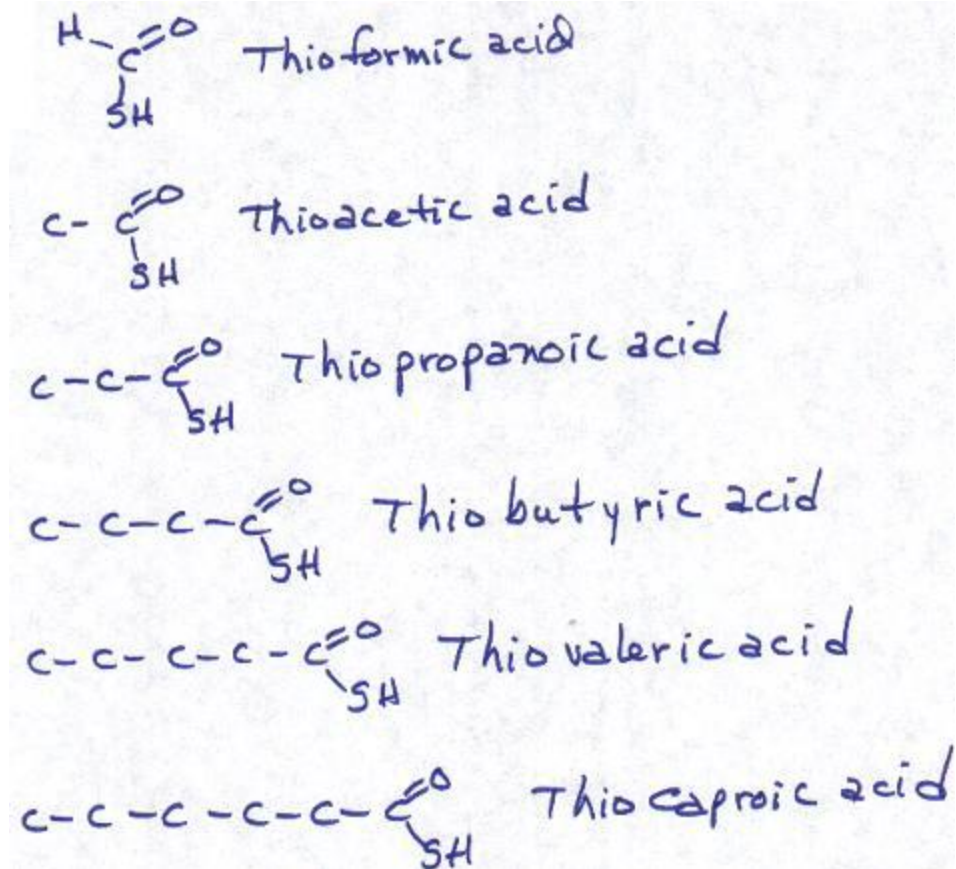 H-C=O Thioformic acid
SH
C-C=O Thioacetic acid
SH
C-C-C=O Thiopropanoic acid
SH
C-C-C-C=O Thiobutyric acid
SH
C-C-C-C-C=O Thiovaleric acid
SH
C-C-C-C-C-C=O Thiocaproic acid
SH